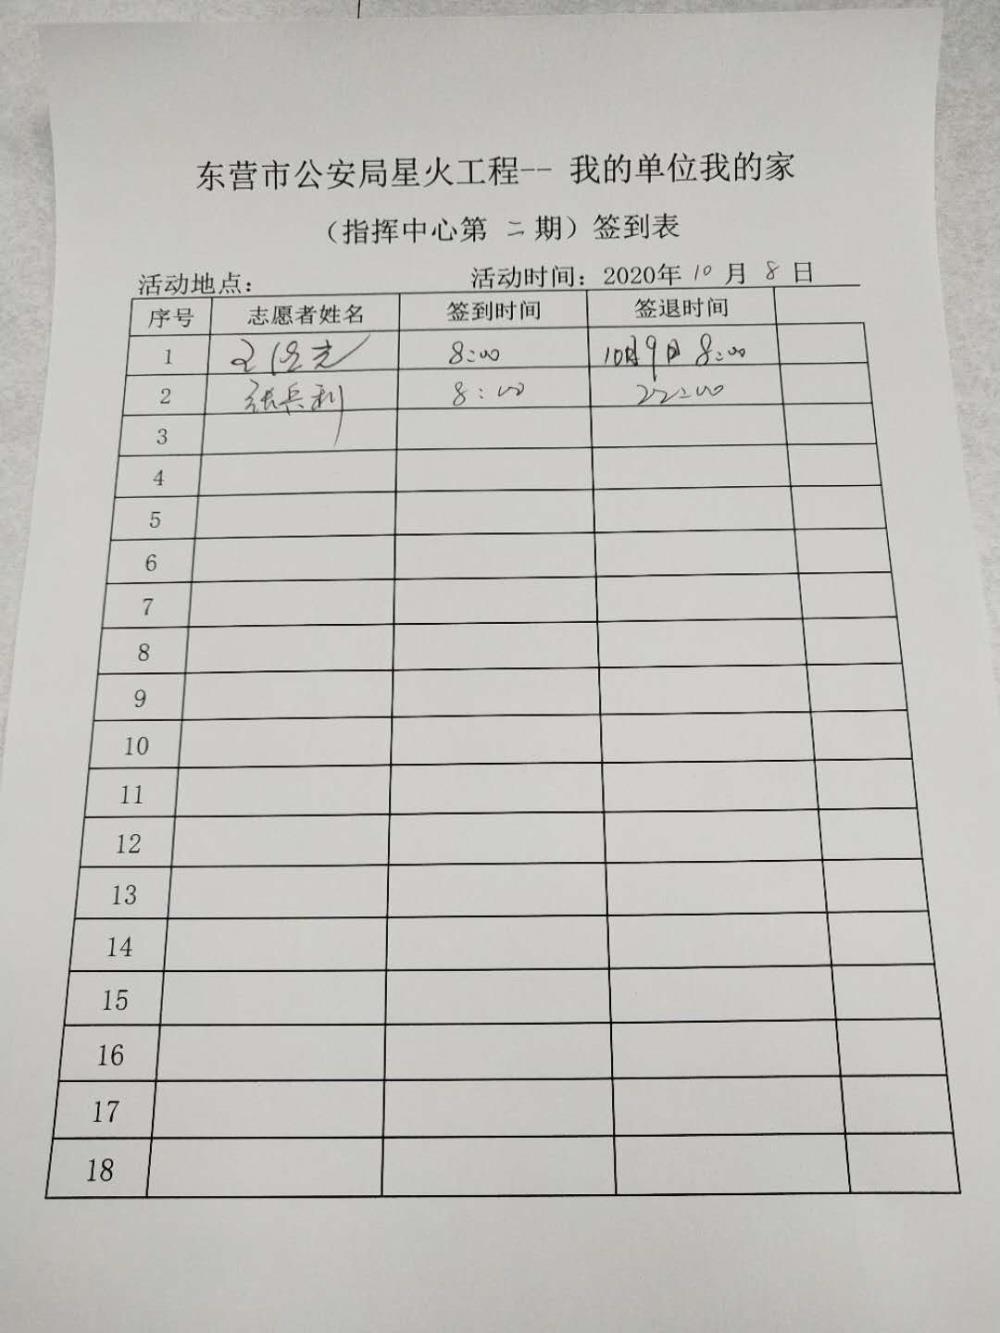 东营市公安局星火工程-- 我的单位我的家
（指挥中心第 二 期）签到表
活动地点： 活动时间：2020年 10 月 8 日
序号 志愿者姓名 签到时间 签退时间
1 8:00 10月9日 8:00
2 张兵利 8:00 22:00
3
4
5
6
7
8
9
10
11
12
13
14
15
16
17
18